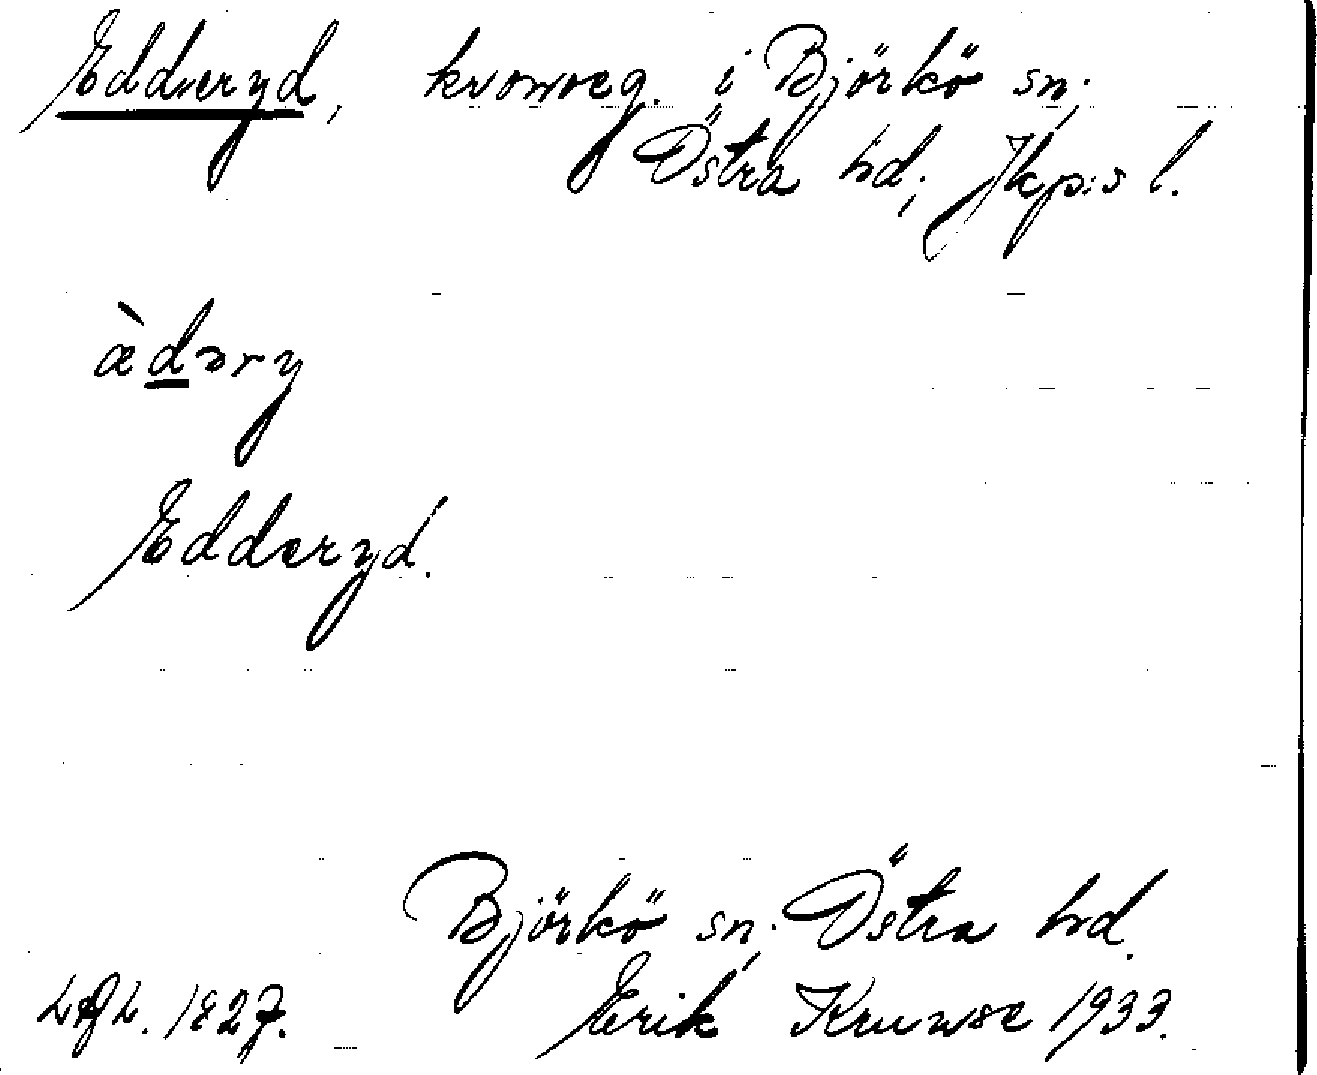 Edderyd, kronoeg. i Björkö sn;
Östra hd; Jkp:s l.
æ̀dəry
Edderyd.
Björkö sn; Östra hd.
1827. Erik Kruuse 1933.